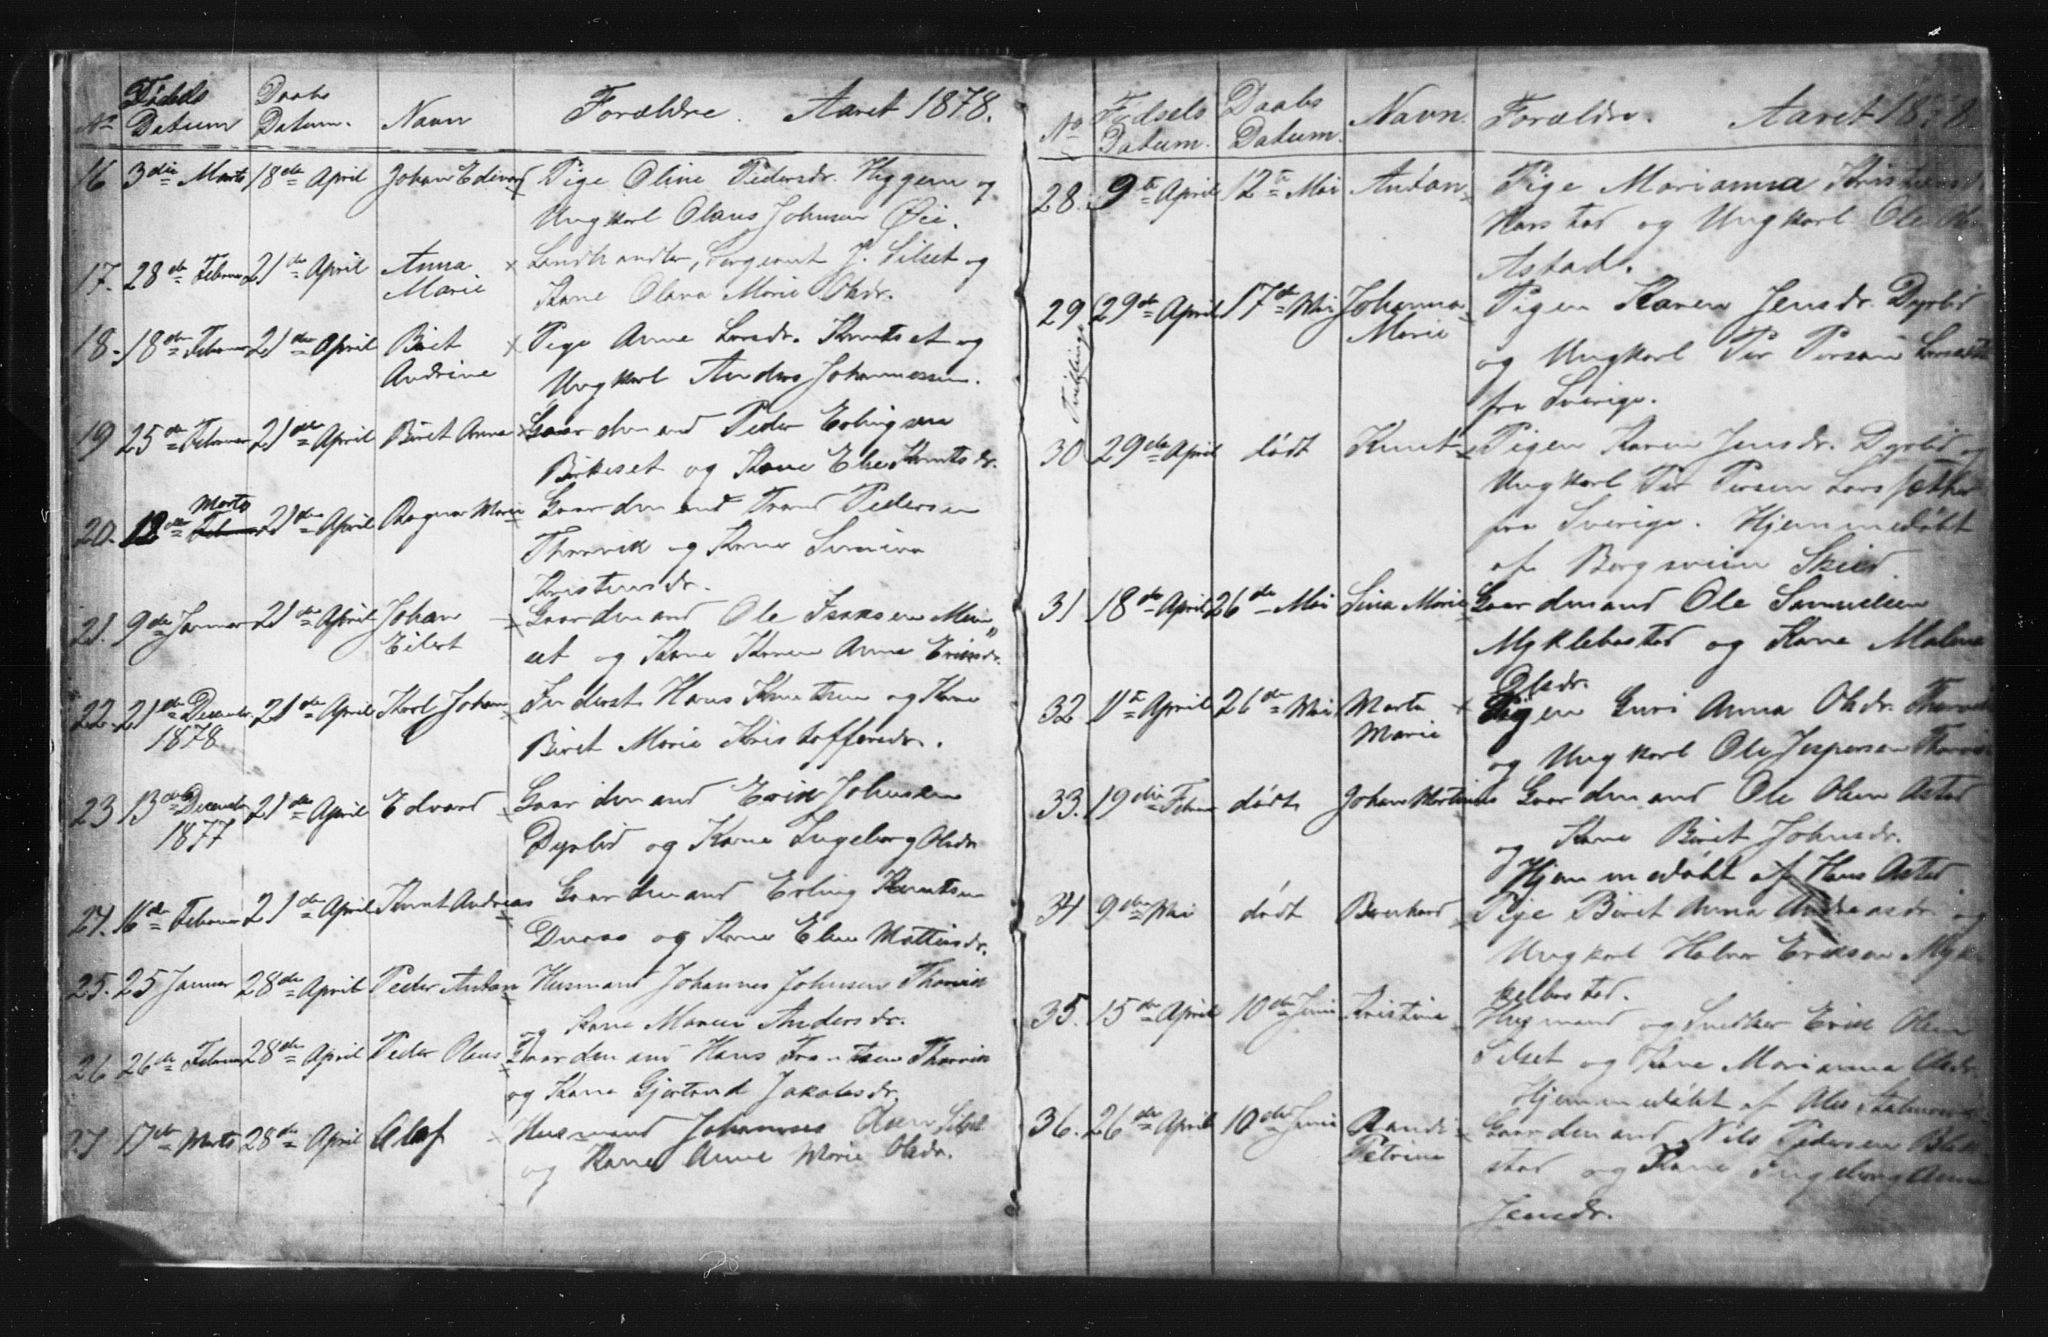 No Fødsels Datum Daabs Datum. Navn Forældre. Aaret 1878.
16 3die Marts 18de April Johan Edvard Pige Oline Pedersdr. Heggem og
Ungkarl Olaus Johnsen Øie.
17. 28de Februar 21de April Anna Marie x Landhandler, Sergeant J. Silset og
Kone Olava Marie Olsdr.
18. 18de Februar 21de April Birit Andrine x Pige Anne Larsdr. Kruts et og
Ungkarl Anders Johannessen.
19 25de Februar 21de April Birit Anna x Gaardmand Peder Erlingsen
Birkeset og Kone Else Knutsdr.
20. 12de Marts 21de April Ragna Marie Gaardmand Trond Pedersen
Thorvik og Kone
Kristensdr.
21. 9de Januar 21de April Johan Eilert x Gaardmand Ole Isaksen Mein
set og Kone Karen Anne Eriksdr.
22. 21de December 1878 21de April Karl Johan x Inderst Hans Knutsen og Kone
Birit Marie Kristoffersdr.
23 13de December 1877 21de April Edvard x Gaardmand Erik Johnsen
Dyrlid og Kone Ingeborg Olsdr
24. 16de Februar 21de April Knut Andreas Gaardmand Erling Knutsen
og Kone Elen Mattiasdr.
25. 25 Januar 28de April Peder Anton Husmand Johannes Johnsen Thorvik
og Kone Maren Andersdr.
26 26de Februar 28de April Peder Olaus Gaardmand Hans Frantsen Thorvik
og Kone Gjertrud Jakobsdr.
27 17de Marts 28de April Olaf x Husmand Johannes Olsen Silset
og Kone Anne Marie Olsdr.
No Fødsels Datum. Daabs Datum. Navn. Forældre. Aaret 1878
28. 9de April 12te Mai Anton x Pige Marianna Kristensd
Harstad og Ungkarl Ole
Astad.
29 29de April 17de Mai Johanna Marie Pigen Karen Jensdr. Dyrlid
og Ungkarl Per Person
fra Sverige.
Tvillinge
30 29de April død Knut x Pigen Karen Jensdr. Dyrlid og
Ungkarl Per Persen Larssæther
fra Sverige. Hjemmedøbt
af Bergsvein Skeid
31 18de April 26de Mai Lina Marie Gaardmand Ole Samuelsen
Myklebostad og Kone Malene
Olsdr.
32 11te April 26de Mai Marta Marie x Pigen Guri Anna Olsdr. Thorvik
og Ungkarl Ole Jespersen Thorvik
33. 19die Februar død Johan Martinius Gaardmand Ole Olsen Astad
og Kone Birit Johnsdr.
Hjemmedøbt af Hans Astad
34 9de Mai død Bernhard x Pige Birit Anna Andreasdr. og
Ungkarl Halvor Eriksen Myk-
kelbostad.
35. 15de April 10de Juni Kristine Husmand og Snedker Erik Olsen
Silset og Kone Marianna Olsdr.
Hjemmedøbt af
36. 26de April 10de Juni Randi Petrine x Gaardmand Nils Pedersen
stad og Kone Ingeborg Anna
Jensdr.